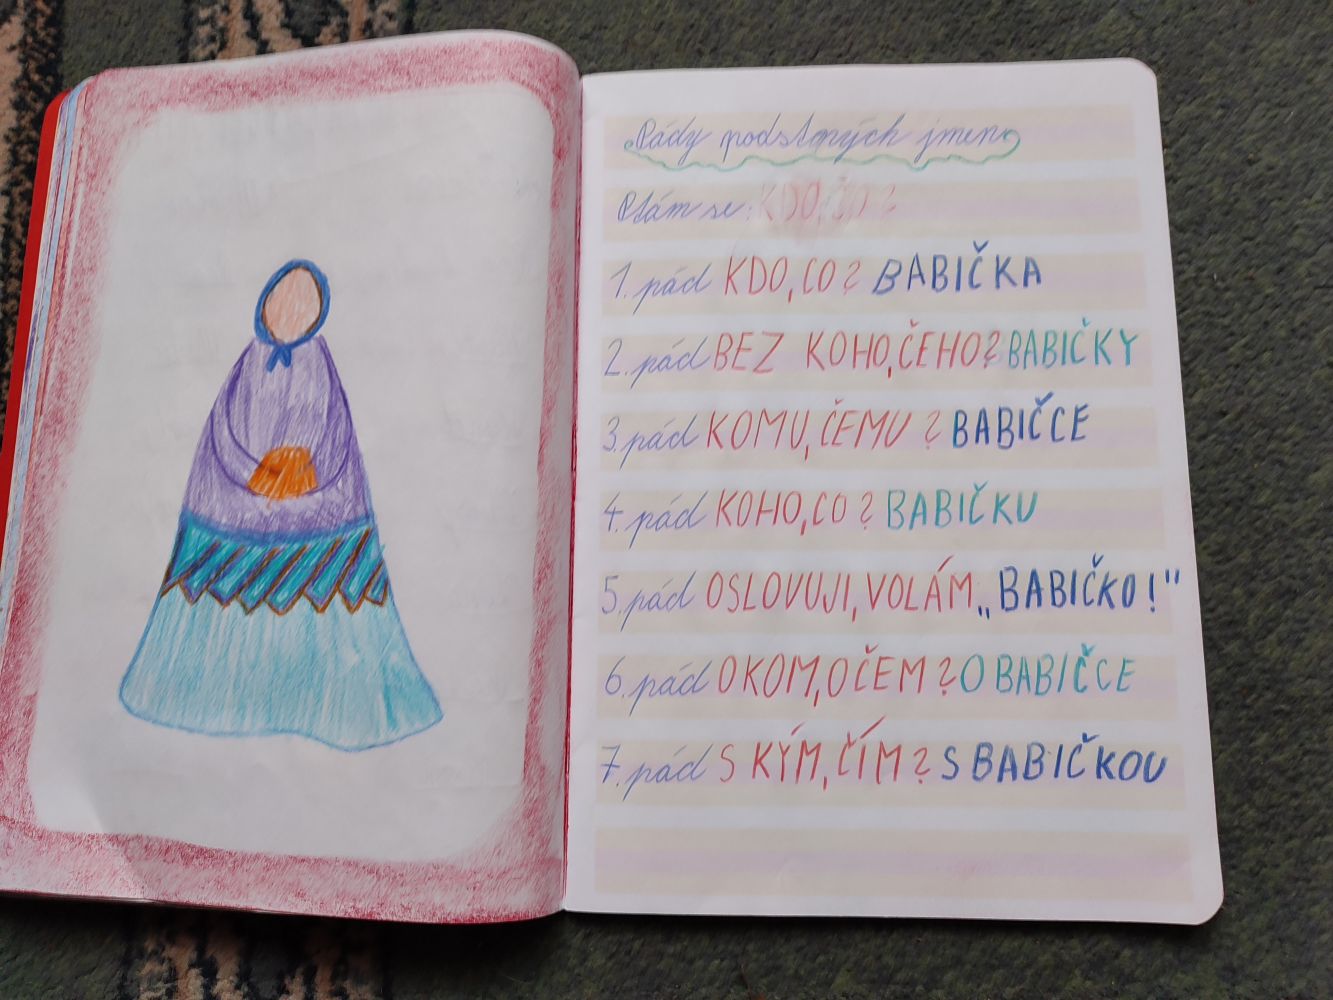 Pády podstaných jmen
Ptám se: KDO, CO?
1. pád KDO, CO? BABIČKA
2. pád BEZ KOHO, ČEHO? BABIČKY
3. pád KOMU, ČEMU? BABIČCE
4. pád KOHO, CO? BABIČKU
5. pád OSLOVUJI, VOLÁM „BABIČKO!"
6. pád O KOM, O ČEM? O BABIČCE
7. pád S KÝM, ČÍM? S BABIČKOU